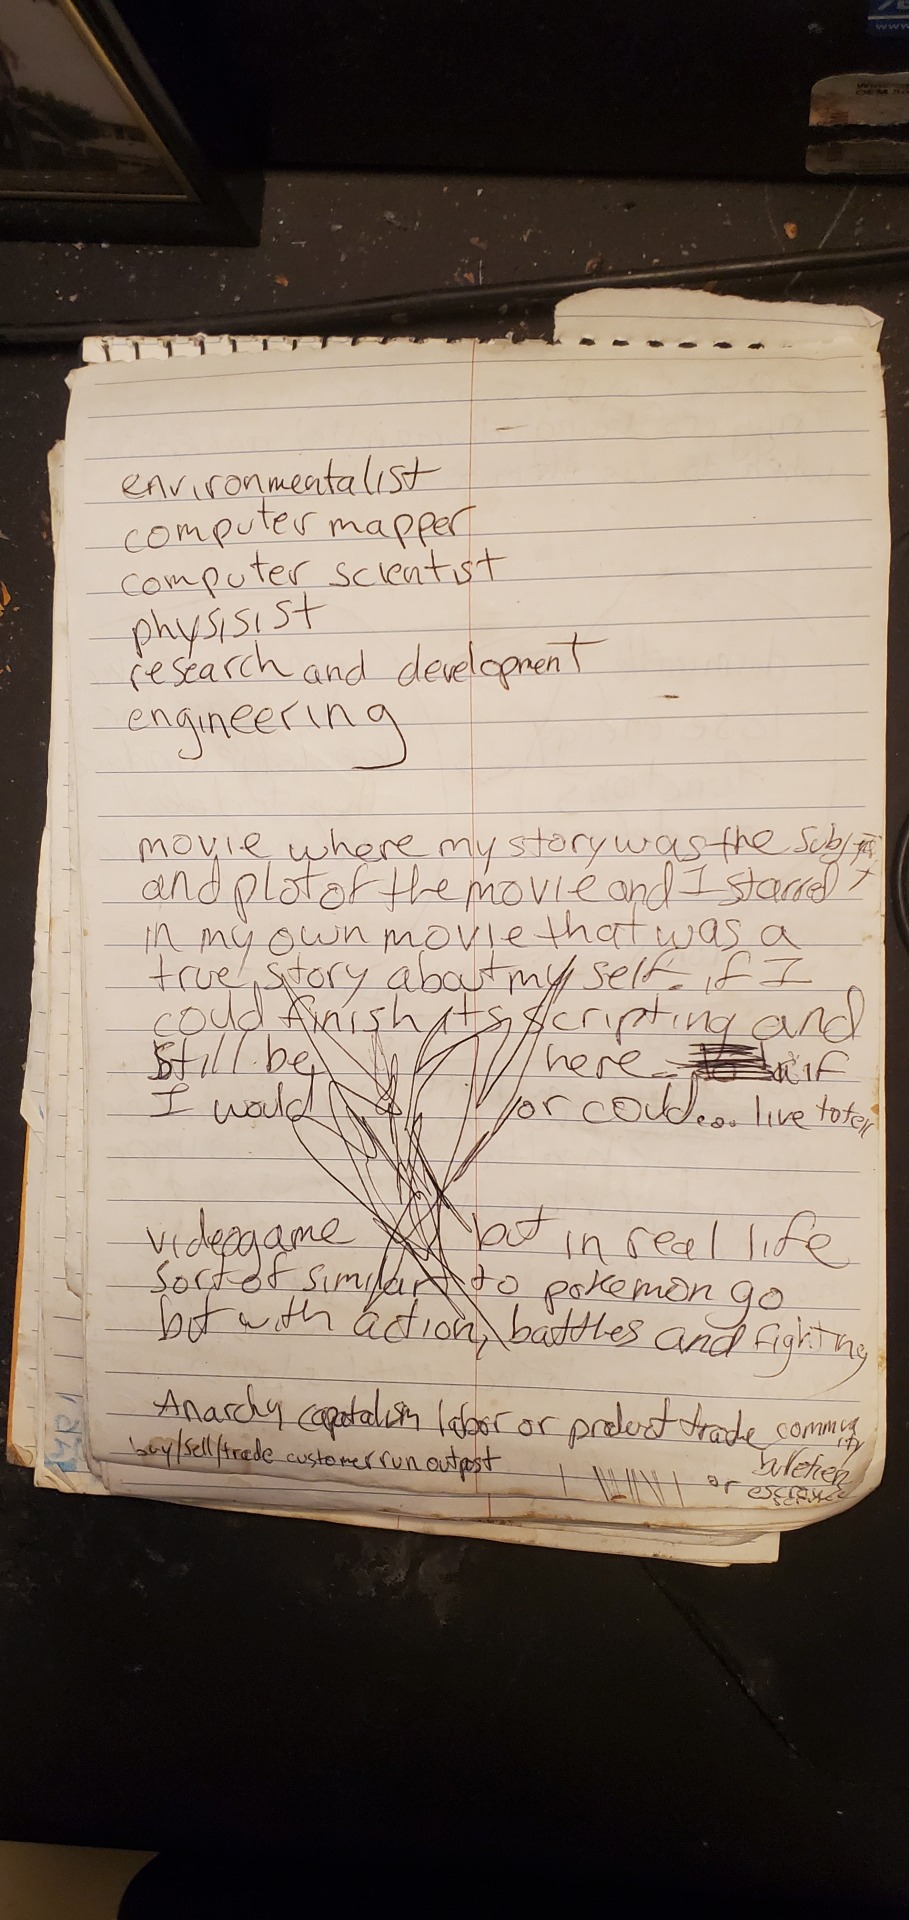 environmentalist
computer mapper
computer scientist
physisist
research and development
engineering
movie where my story was the
and plot of the movie and I starred
in my own movie that was a
true story about my self. if I
could finish its scripting and
still be here if
I would or could... live to tell
videogame but in real life
sort of similar to pokemon go
but with action, battles and fighting
Anarchy capatalism labor or product trade community
buy/sell/trade customer run outpost
or